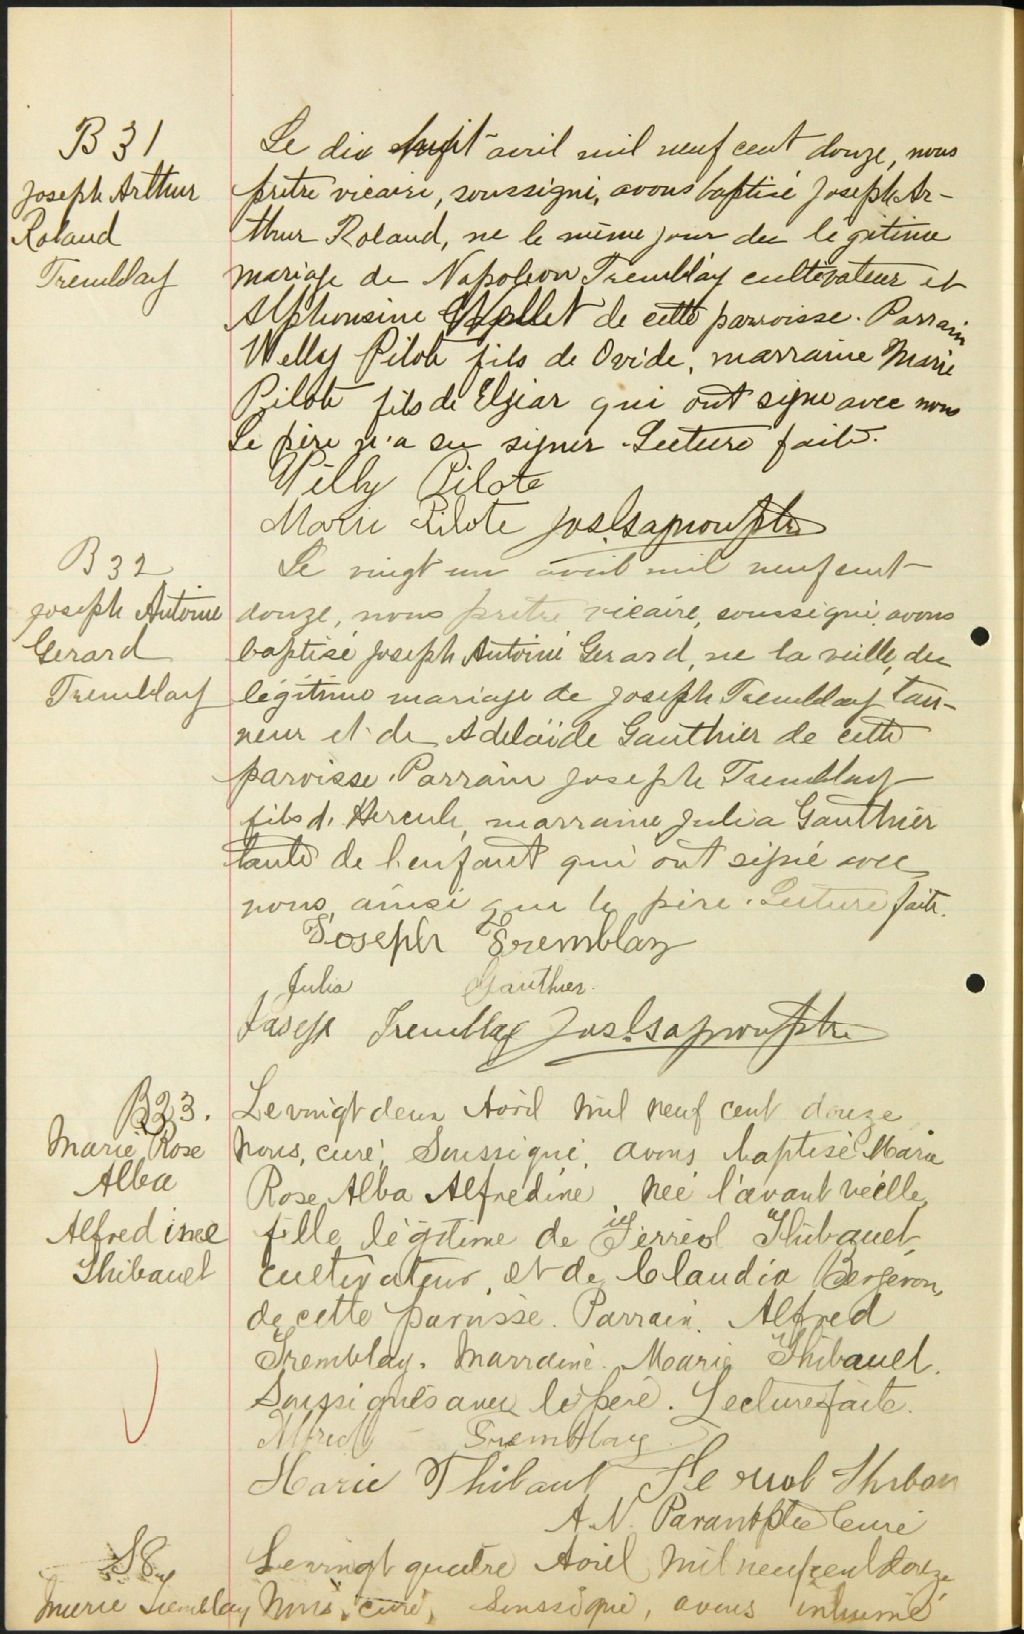 B 31
Joseph Arthur
Roland
Tremblay
Le dix huit avril mil neuf cent douze, nous
prêtre vicaire, soussigné, avons baptisé Joseph Ar-
thur Roland, ne le même jour du légitime
mariage de Napoléon Tremblay cultivateur et
Alphonsine de cette parroisse. Parrain
Welly Pilote fils de Ovide, marraine Marie
Pilote fils de Elzéar qui ont signé avec nous
Le père n'a su signer. Lecture faite.
Willy Pilote
Marie Pilote Jos. ptre
B 32
Joseph Antoine
Gerard
Tremblay
Le vingt un avril mil neuf cent
douze, nous prêtre vicaire, soussigné, avons
baptisé Joseph Antoine Gerard, ne la veille, du
légitime mariage de Joseph Tremblay tan-
neur et de Adelaïde Gauthier de cette
paroisse. Parrain Joseph Tremblay
fils d. Hercule, marraine Julia Gauthier
tante de l'enfant qui ont signé avec
nous, ainsi que le père. Lecture faite.
Joseph Tremblay
Julia Gauthier.
Joseph Tremblay Jos. ptre
B23.
Marie Rose
Alba
Alfredinee
Thibault
Le vingt deux Avril mil neuf cent douze
Nous, curé, Soussigné, avons baptisé Marie
Rose Alba Alfredine neé l'avant veille,
fille légitime de Thibault,
cultivateur, et de Claudia Bergeron,
de cette paroisse. Parrain. Alfred
Tremblay. Marraine. Marie Thibault.
Soussignés avec le père. Lecture faite.
Alfred Tremblay
Marie Thibaut
A. N. Parant Ptre Curé
S8
Marie Tremblay
Le vingt quatre Avril mil neuf cent douze
Nous, curé, Soussigné, avons inhumé